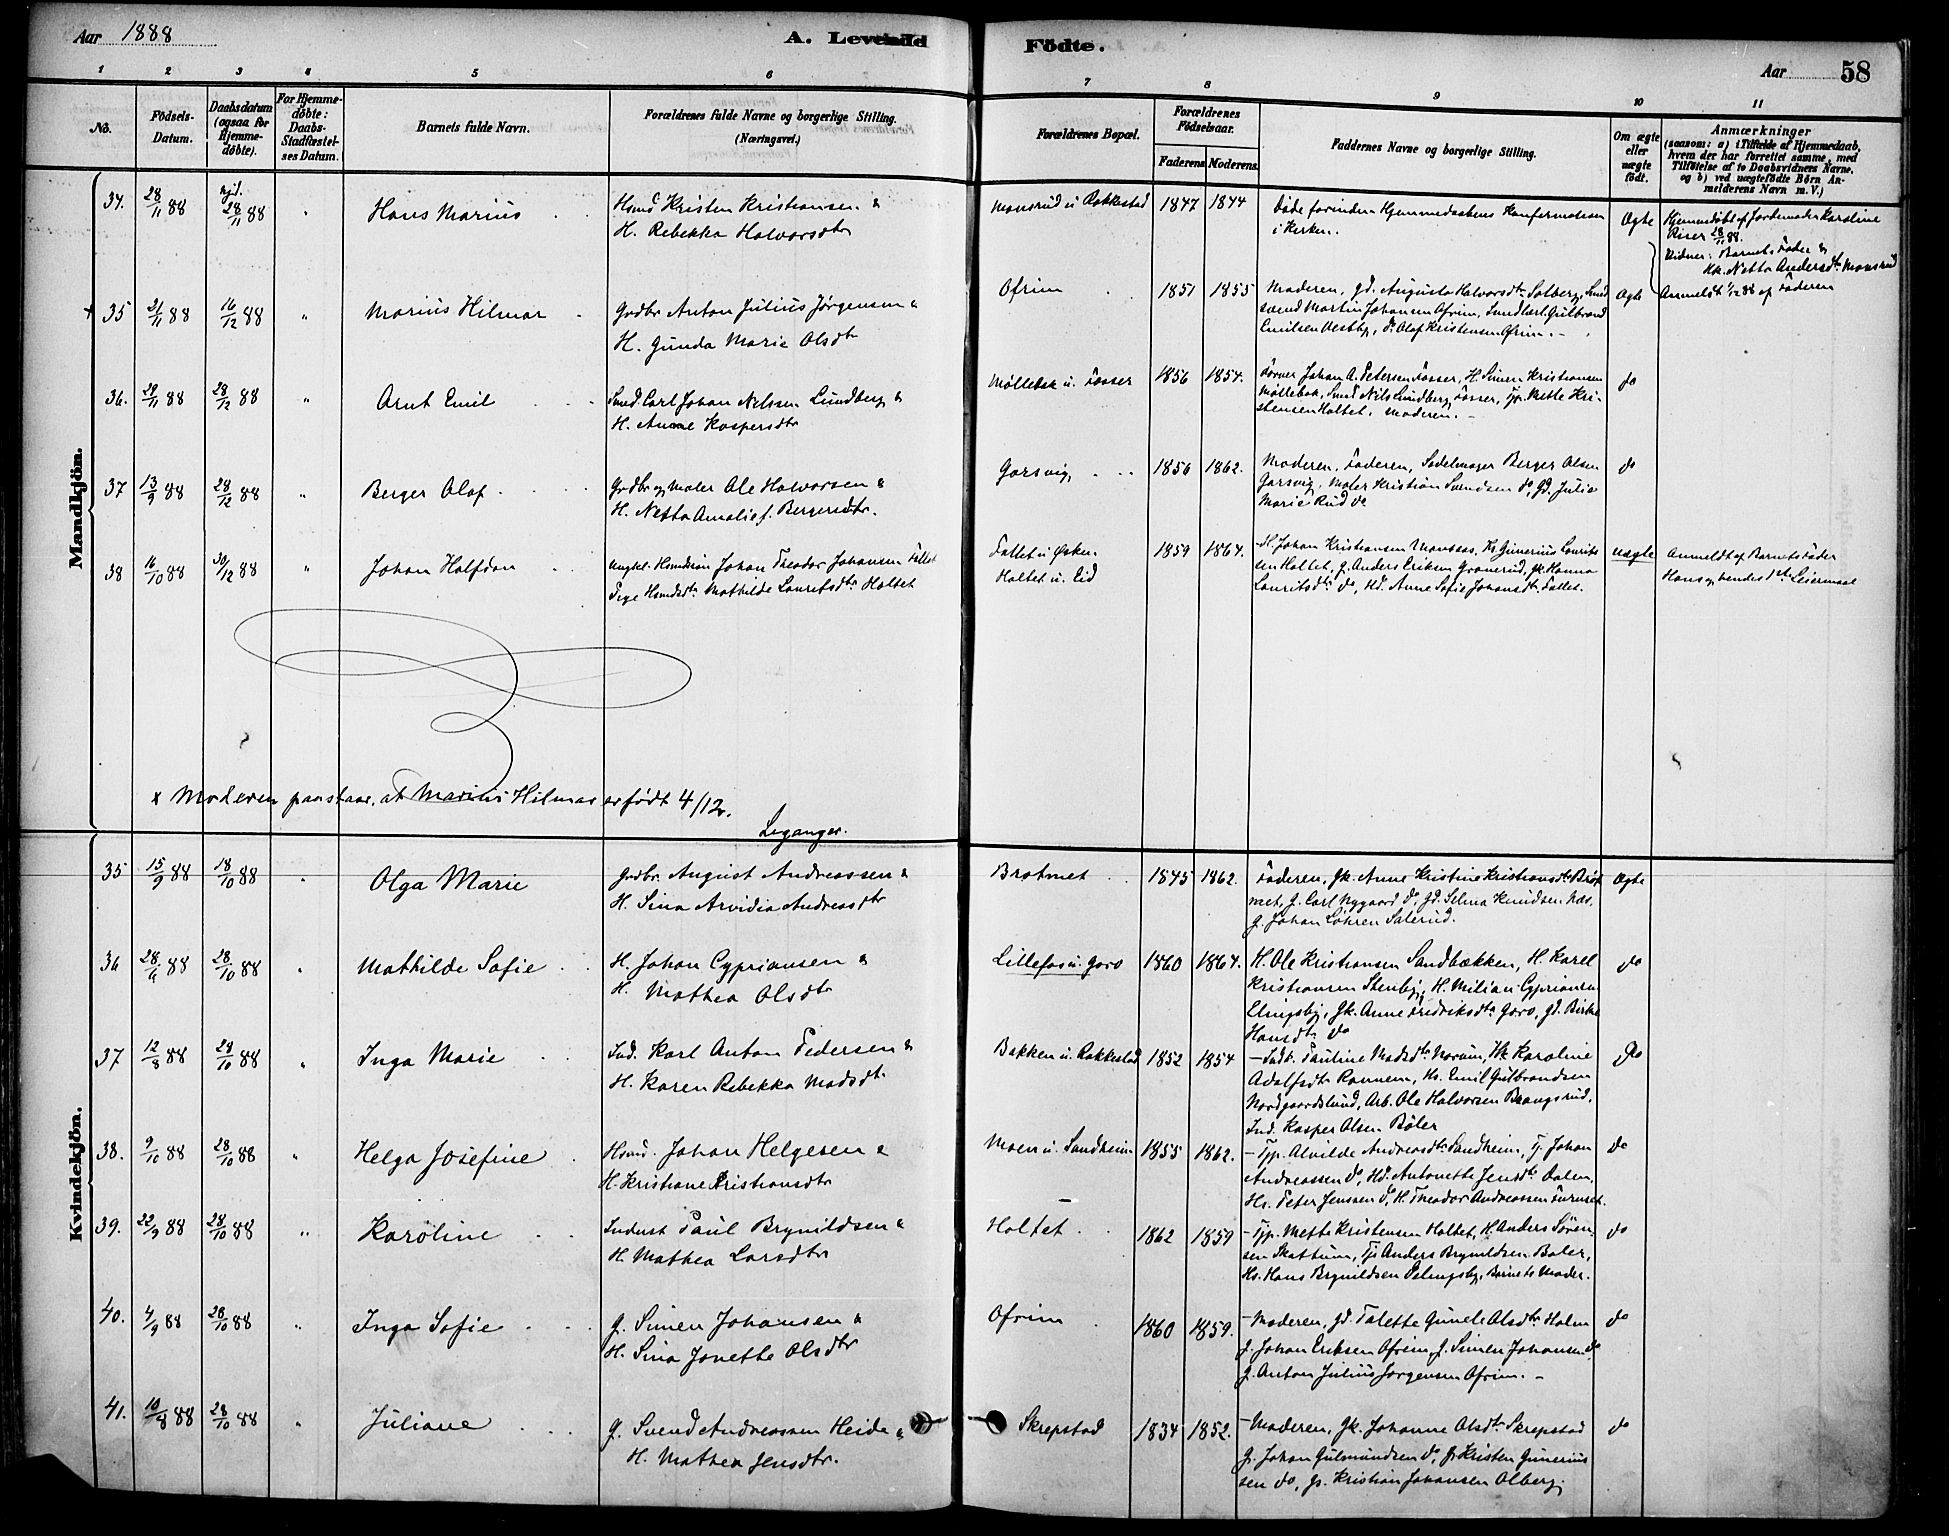 Aar 1888
A. Levende Födte.
Aar 58
1 2 3 4 5 6 7 8 9 10 11
No.
Födsels-Datum.
Daabsdatum (ogsaa for Hjemme-döbte).
For Hjemme-döbte: Daabs-Stadfæstel-ses Datum.
Barnets fulde Navn.
Forældrenes fulde Navne og borgerlige Stilling. (Næringsvei.)
Forældrenes Bopæl.
Forældrenes Födselsaar.
Faderens Moderens
Faddernes Navne og borgerlige Stilling.
Om ægte eller uægte födt.
Anmærkninger
(saasom: a) i Tilfælde af Hjemmedaab,
hvem der har forrettet samme, med
Tilföielse af to Daabsvidners Navne,
og b) ved uægtefödte Börn An-
melderens Navn m. V.)
Mandkjön.
34. 28/11 88 hjd. 28/11 88 " Hans Marius
Hsmd Kristen Kristiansen &
H. Rebekka Halvorsdtr
Monsrud u. Rakkestad 1847 1844
Døde forinden Hjemmedaabens Konfirmation
i Kirken.
Ægte
Hjemmedøbt af Jordemoder Karoline
Riser 28/11 88.
Vidner: Barnets Fader &
Hk. Netta Andersdtr Monsrud
35 21/11 88 16/12 88 " Marius Hilmar
Grdbr Anton Julius Jørgensen &
H. Gunda Marie Olsdtr
Ofrim 1851 1855
Moderen, Gd. Augusta Halvorsdtr Solberg, Smed
svend Martin Johansen Ofrim, Gulbrand
Emilsen Vestby, do Olaf Kristensen Ofrim. -
Ægte
Anmeldt 1/12 88 af Faderen
36. 29/11 88 28/12 88 " Arnt Emil
Smed Carl Johan Nilssen Lundberg &
H. Anne Kaspersdtr
Møllebak u. Fosser 1856 1854.
Johan A. Petersen Fosser, H. Simen Kristiansen
Møllebak, Smed Nils Lundberg Fosser, Tjp. Mette Kri-
stensen Holtet, Moderen. -
do
37 13/9 88 28/12 88 " Berger Olaf
Grdbr og Maler Ole Halvorsen &
H. Netta Amalie f. Bergersdtr.
Garsvig 1856 1862.
Moderen, Faderen, Sadelmager Berger Olsen
Garsvig, Maler Kristian Svendsen do, Gd. Julie
Marie Rud do
do
38 16/10 88 30/12 88 " Johan Halfdan
Ungkl. Johan Theodor Johansen Fallet
Pige Hsmdsdtr Mathilde Lauritsdtr Holtet
Fallet u. Ysken
Holtet u. Eid
1859 1864.
Johan Kristiansen Monsaas, Hs. Gunerius Laurits
sen Holtet, G. Anders Eriksen Granerud, Gk. Hanna
Lauritsdtr do, Hd. Anne Sofie Johansdtr Fallet.
uægte
Anmeldt af Barnets Fader
Hans og hendes 1ste Leiermaal
x Moderen paastaar, at Marius Hilmar er født 4/12.
Leganger.
Kvindekjön.
35 15/9 88 18/10 88 " Olga Marie
Grdbr. August Andreassen &
H. Sina Arvidia Andreasdtr
Bratmet 1845 1862.
Faderen, Gk. Anne Kristine Kristiansdtr Brat
met, G. Carl Nygaard do, Gd. Selma Knudsen Næs,
G. Johan Løhren Salerud.
Ægte
36 28/9 88 28/10 88 " Mathilde Sofie
H. Johan Cypriansen &
H. Mathea Olsdtr
Lillefos u. Garo 1860 1864.
H. Ole Kristiansen Sandbækken, H. Karel
Kristiansen Stenby, H. Milian Cypriansen
Elingsby, Gk. Anne Fredriksdtr Garo, Gd. Birthe
Hansdtr do
do
37 12/8 88 28/10 88 " Inga Marie
Ind. Karl Anton Pedersen &
H. Karen Rebekka Madsdtr
Bakken u. Rakkestad 1852 1854
- Indk. Pauline Madsdtr Norum, Hk. Karoline
Adolfsdtr Rannem, Hs. Emil Gulbrandsen
Nordgaardslund, Arb. Ole Halvorsen Brangsrud,
Ind. Kasper Olsen Bøler
do
38. 9/10 88 28/10 88 " Helga Josefine
Hsmd. Johan Helgesen &
H. Kristiane Kristiansdtr
Moen u. Sandheim 1855 1862.
- Tjp. Alvilde Andreasdtr Sandheim, Tj. Johan
Andreassen do, Hd. Antonette Jensdtr Dalen,
Hs. Peter Jenssen do, H. Theodor Andreassen Furuset.
do
39. 22/9 88 28/10 88 " Karoline
Inderst Paul Brynildsen &
H. Mathea Larsdtr
Holtet 1862 1859
- Tjp. Mette Kristensen Holtet, H. Anders Søren-
sen Skattum, Tj. Anders Brynildsen Bøler,
Hs. Hans Brynildsen Elingsby, Barnets Moder.
do
40. 4/9 88 28/10 88 " Inga Sofie
G. Simen Johansen &
H. Sina Jonette Olsdtr
Ofrim 1860 1859.
- Moderen, Gd. Talette Gunele Olsdtr Holm
G. Johan Eriksen Ofrim, G. Simen Johansen do
G. Anton Julius Jørgensen Ofrim. -
do
41. 10/8 88 28/10 88 " Juliane
G. Svend Andreassen Heide &
H. Mathea Jensdtr.
Skrepstad 1834 1852.
- Moderen, Gk. Johanne Olsdtr Skrepstad
G. Johan Gulmundsen do, Gs. Kristen Gunerius
sen do, Gs. Kristian Johansen Olberg.
do